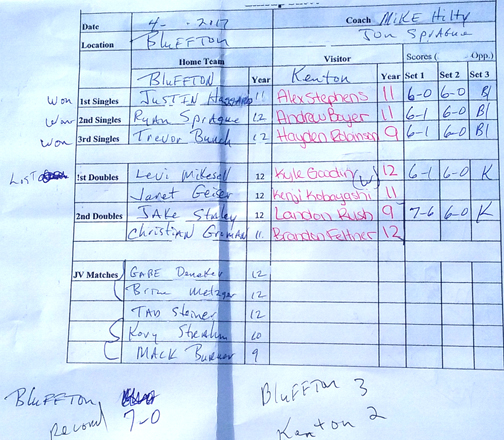 Date 4- .2017 Coach Mike Hilty
Location BLUFFTON Jon Sprague
Home Team Visitor Scores ( Opp.)
BLUFFTON Year Kenton Year Set 1 Set 2 Set 3
Won 1st Singles JUSTIN 11 Alex Stephens 11 6-0 6-0 Bl
Won 2nd Singles Ryan Sprague 12 Andrew Boyer 11 6-1 6-0 Bl
Won 3rd Singles Trevor Bunch 12 Hayden Robinson 9 6-1 6-0 Bl
1st Doubles Levi Mikesell 12 Kyle (W) 12 6-1 6-0 K
Janet Geiser 12 Kenji Kobayashi 11
2nd Doubles JAKE 12 Landon Rush 9 7-6 6-0 K
Christian 11 Brandon Feltner 12
JV Matches GABE 12
Metzger 12
TAD Steiner 12
Kovy 10
MACK 9
BLUFFTON BLUFFTON 3
Record 7-0 Kenton 2